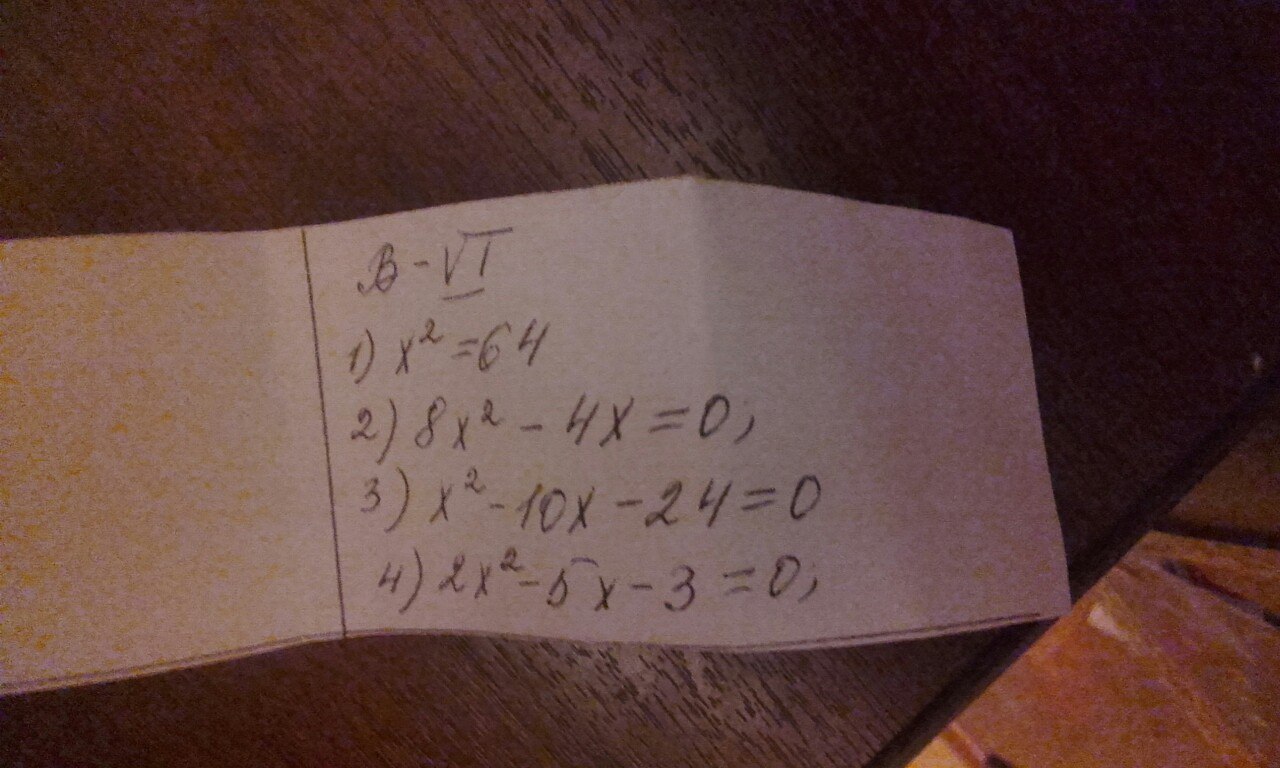 В-VI
1) x² = 64
2) 8x² - 4x = 0;
3) x² - 10x - 24 = 0
4) 2x² - 5x - 3 = 0;